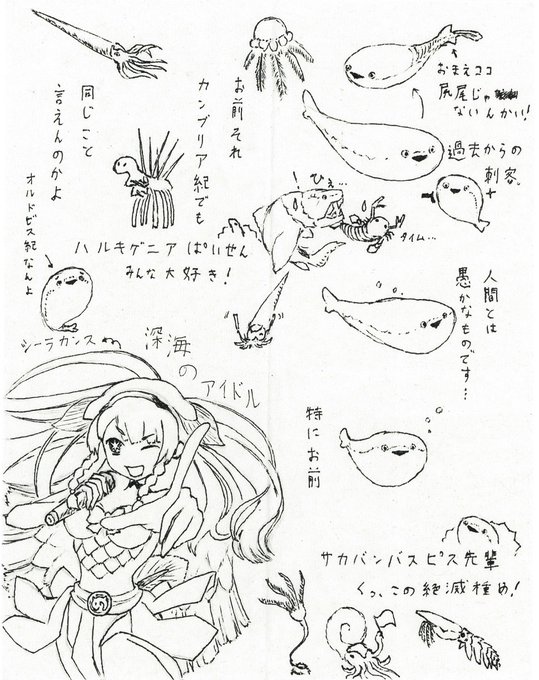 おまえココ
尻尾じゃ
ないんかい！
過去からの
刺客。
お前それ
カンブリア紀でも
同じこと
言えんのかよ
オルドビス紀なんよ
ひぇ…
タイム…
ハルキゲニアぱいせん
みんな大好き！
人間とは
愚かなものです…
シーラカンス
深海
の
アイドル
特にお前
サカバンバスピス先輩
くっ、この絶滅種め！